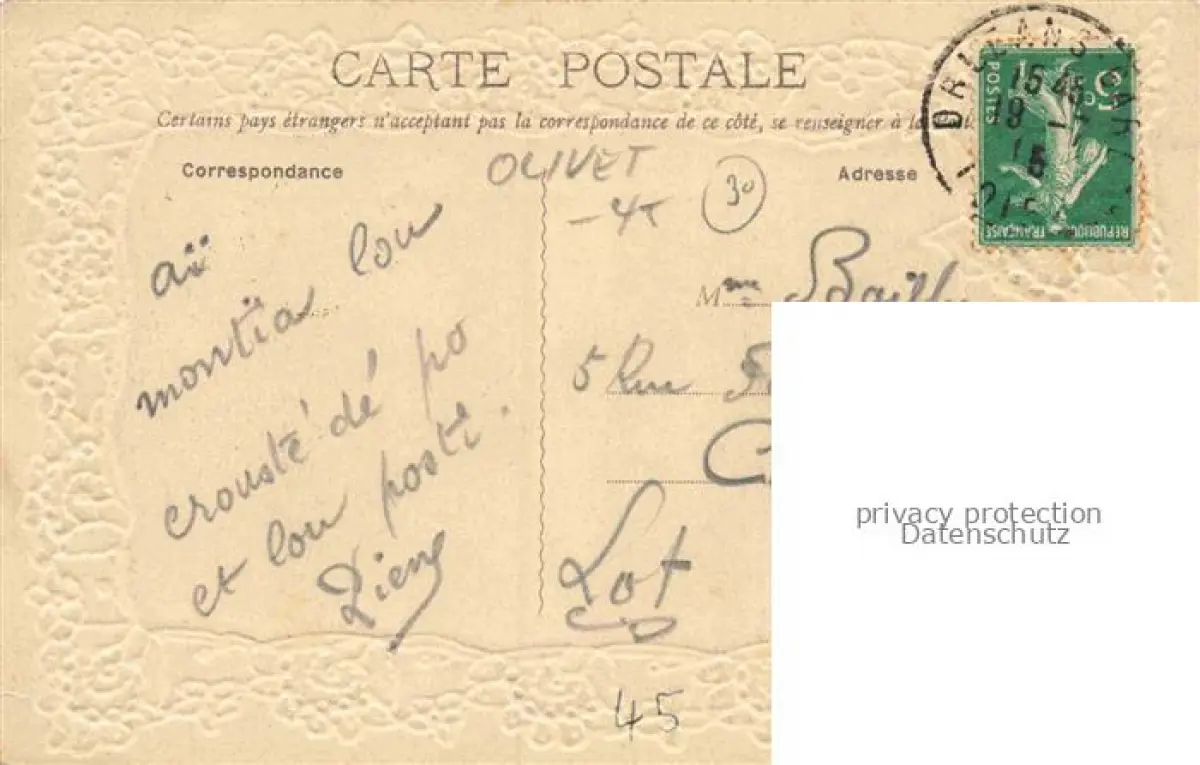 CARTE POSTALE
Certains pays étrangers n'acceptent pas la correspondance de ce côté, se renseigner à la
Correspondance
OLIVET
- 45
30
Adresse
aü
montia lou
crousté dé po
et lou posti.
Mme Bailly
5 Rue
Lot
45
ORLEANS GARE
15 45
19 - 1
15
POSTES
5 c
REPUBLIQUE FRANÇAISE
privacy protection
Datenschutz